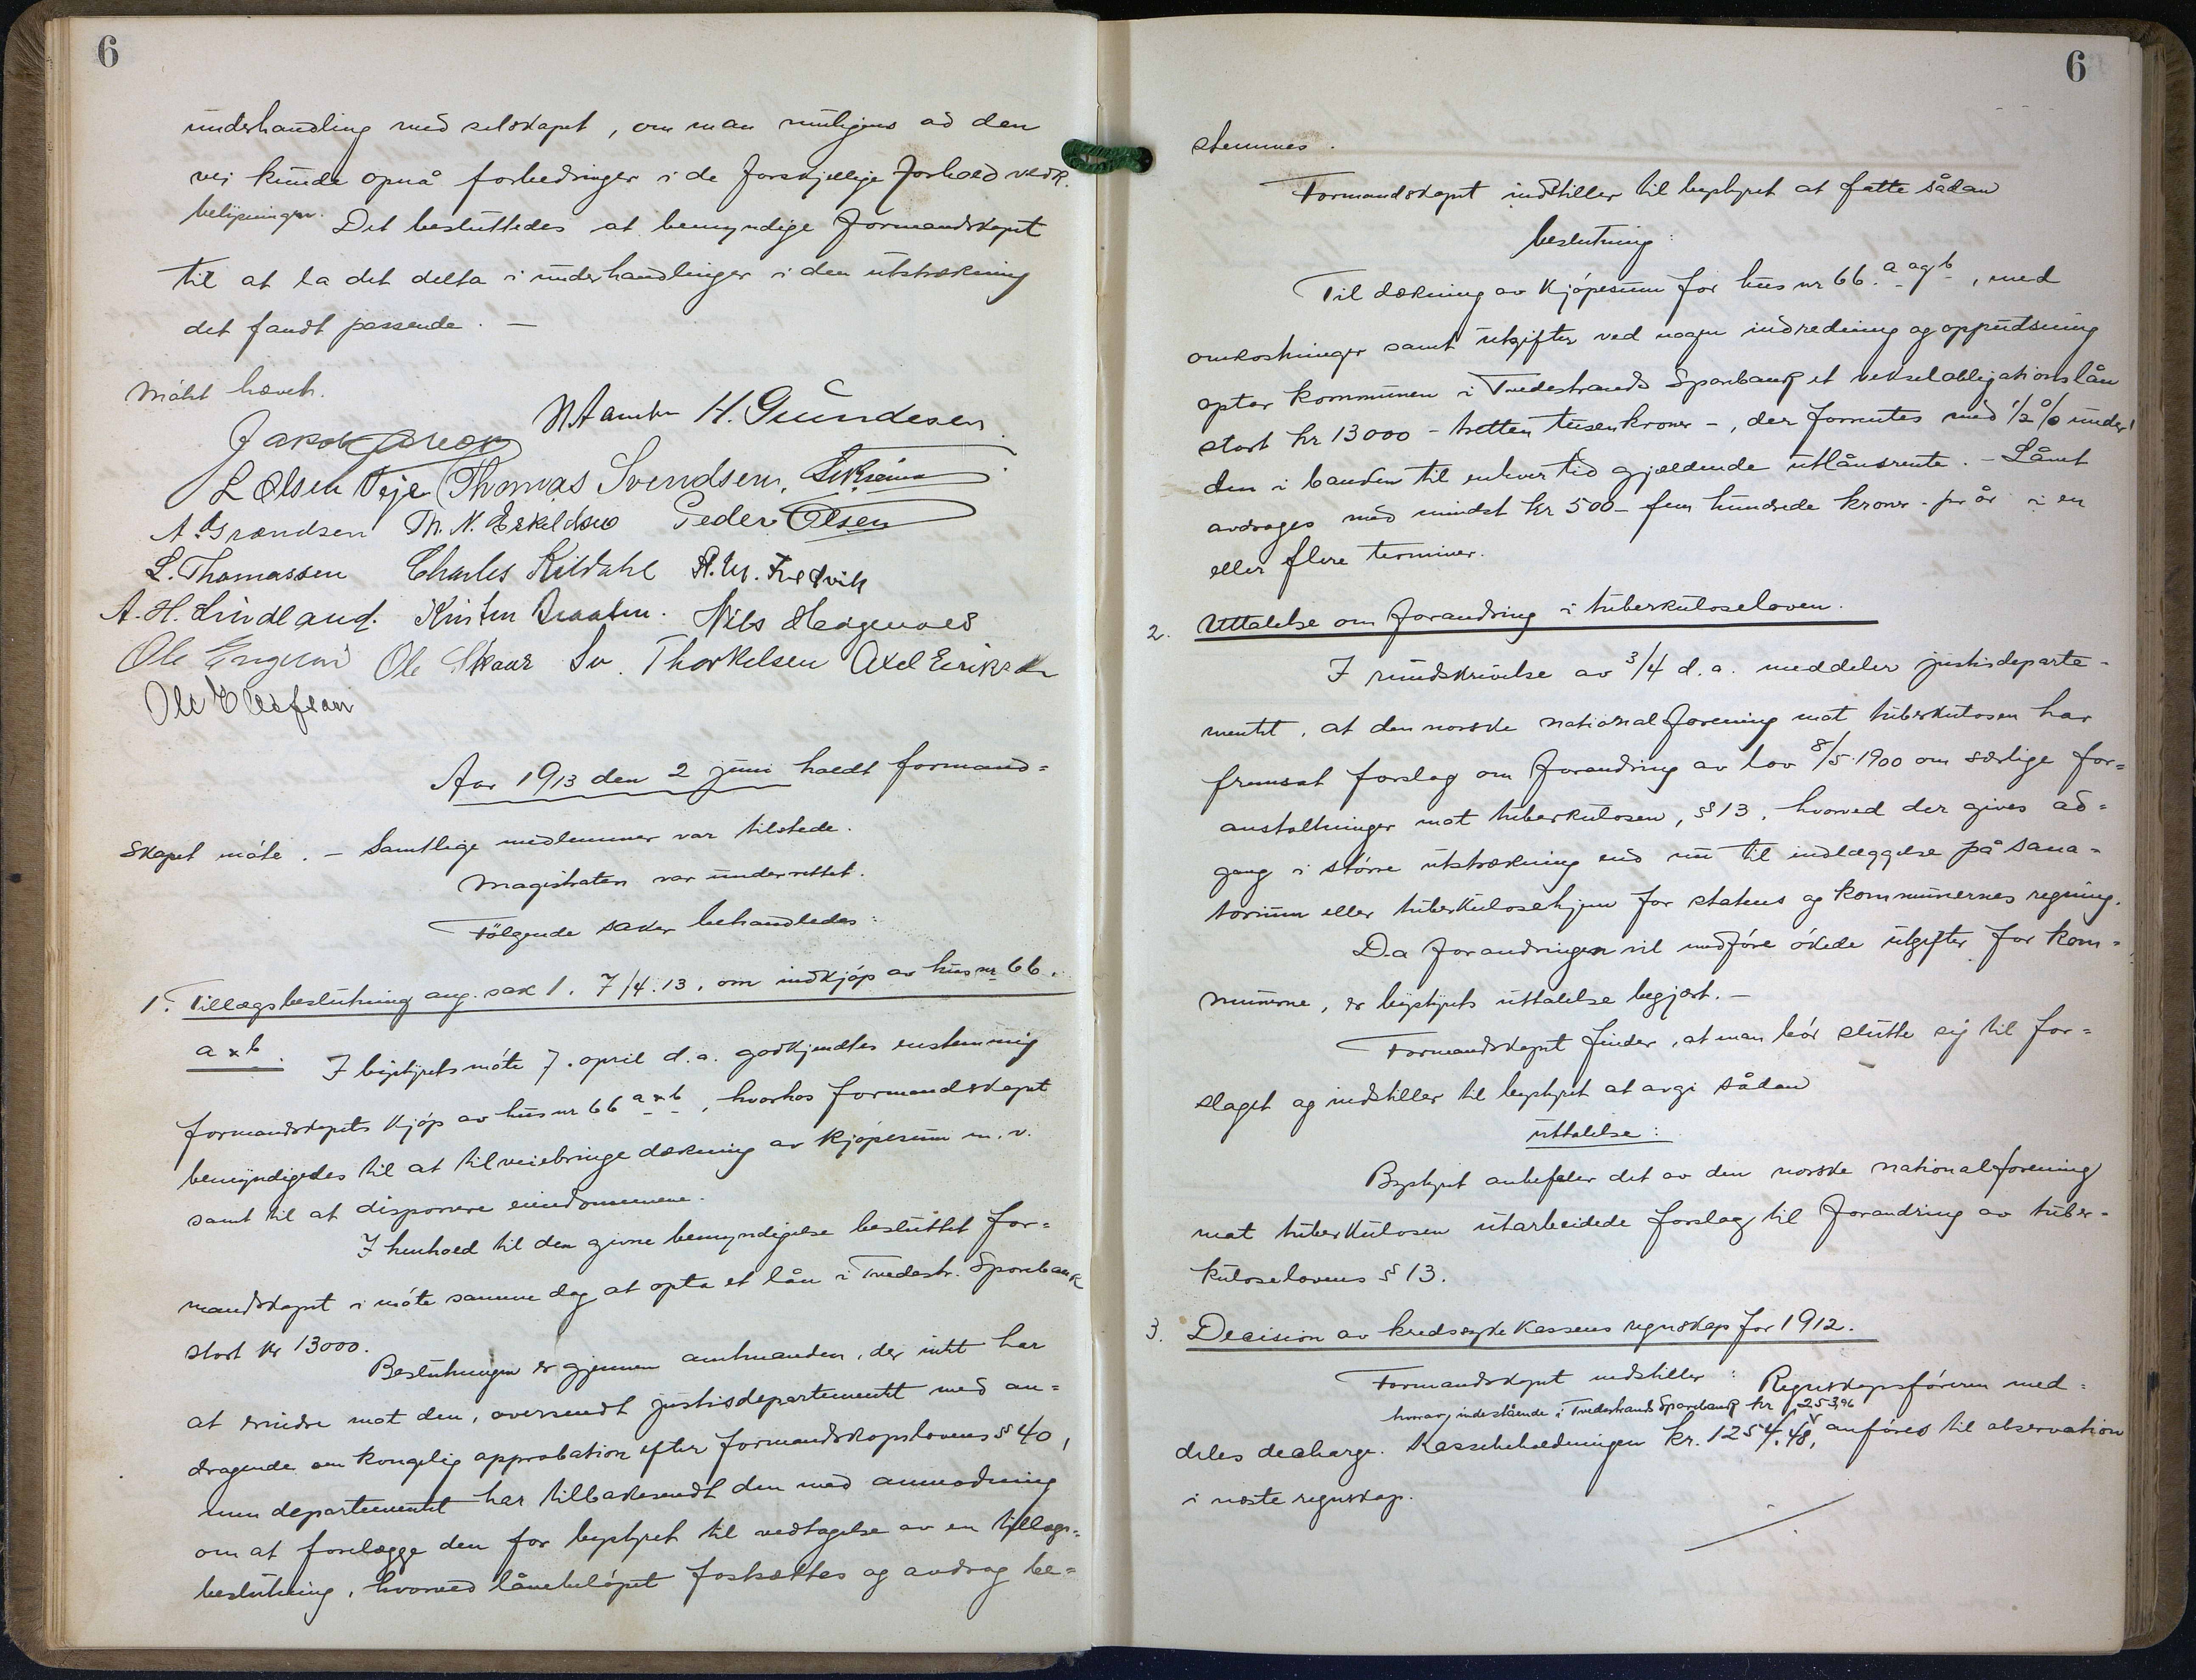 6
underhandling med selskapet, om man muligens ad den
vei kunde opnå forbedringer i de forskjellige forhold vedk.
belysningen. Det besluttedes at bemyndige formandskapet
til at la det delta i underhandlinger i den utstrækning
det fandt passende. —
Møtet hævet.
H. Gundesen
L Olsen Veje Thomas Svendsen,
Th. N. Eskeldsen Peder Olsen
L. Thomassen Charles Kildahl
A. H. Lindland. Nils
Ole Ole Skaar Sv. Thorkelsen Axel Eriksen
Ole
Aar 1913 den 2 juni holdt formand=
skapet møte. — Samtlige medlemmer var tilstede.
Magistraten var underrettet.
Følgende saker behandledes:
1. Tillægsbeslutning ang. sak 1. 7/4.13, om indkjøp av hus nr 66.
a & b. I bystyrets møte 7. april d.a. godkjendtes enstemmig
formandskapets kjøp av hus nr 66 a & b, hvorhos formandskapet
bemyndigedes til at tilveiebringe dækning av kjøpesum m.v.
samt til at disponere eiendommene.
I henhold til den givne bemyndigelse besluttet for=
mandskapet i møte samme dag at opta et lån i Tvedestr. Sparebank
stort kr 13000.
Beslutningen er gjennem amtmanden, der intet har
at erindre mot den, oversendt justisdepartementet med an=
dragende om kongelig approbation efter formandskapslovens § 40,
men departementet har tilbakesendt den med anmodning
om at forelægge den for bystyret til vedtagelse av en tillægs=
beslutning, hvorved lånebeløpet fastsættes og avdrag be=
6
stemmes.
Formandskapet indstiller til bystyret at fatte sådan
beslutning:
Til dækning av kjøpesum for hus nr 66. a og b, med
omkostninger samt utgifter ved nogen indredning og oppudsning
optar kommunen i Tvedestrands Sparebank et vekselobligationslån
stort kr 13000 - tretten tusen kroner -, der forrentes med 1/2 % under
den i banken til enhver tid gjældende utlånsrente. — Lånet
avdrages med mindst kr 500 - fem hundrede kroner - pr år i en
eller flere terminer.
2. Uttalelse om forandring i tuberkuloseloven.
I rundskrivelse av 3/4 d.a. meddeler justisdeparte-
mentet, at den norske nationalforening mot tuberkulosen har
fremsat forslag om forandring av lov 8/5 1900 om særlige for=
anstaltninger mot tuberkulosen, § 13, hvorved der gives ad=
gang i større utstrækning end nu til indlæggelse på sana=
torium eller tuberkulosehjem for statens og kommunernes regning.
Da forandringen vil medføre økede utgifter for kom=
munerne, er bystyrets uttalelse begjært. —
Formandskapet finder, at man bør slutte sig til for=
slaget og indstiller til bystyret at avgi sådan
uttalelse:
Bystyret anbefaler det av den norske nationalforening
mot tuberkulosen utarbeidede forslag til forandring av tuber=
kuloselovens § 13.
3. Decision av kredssykekassens regnskap for 1912.
Formandskapet indstiller: Regnskapsføreren med=
hvorav indestående i Tvedestrands Sparebank kr 1253,96
deles decharge. Kassebeholdningen kr. 1254,48, anføres til observation
i næste regnskap.